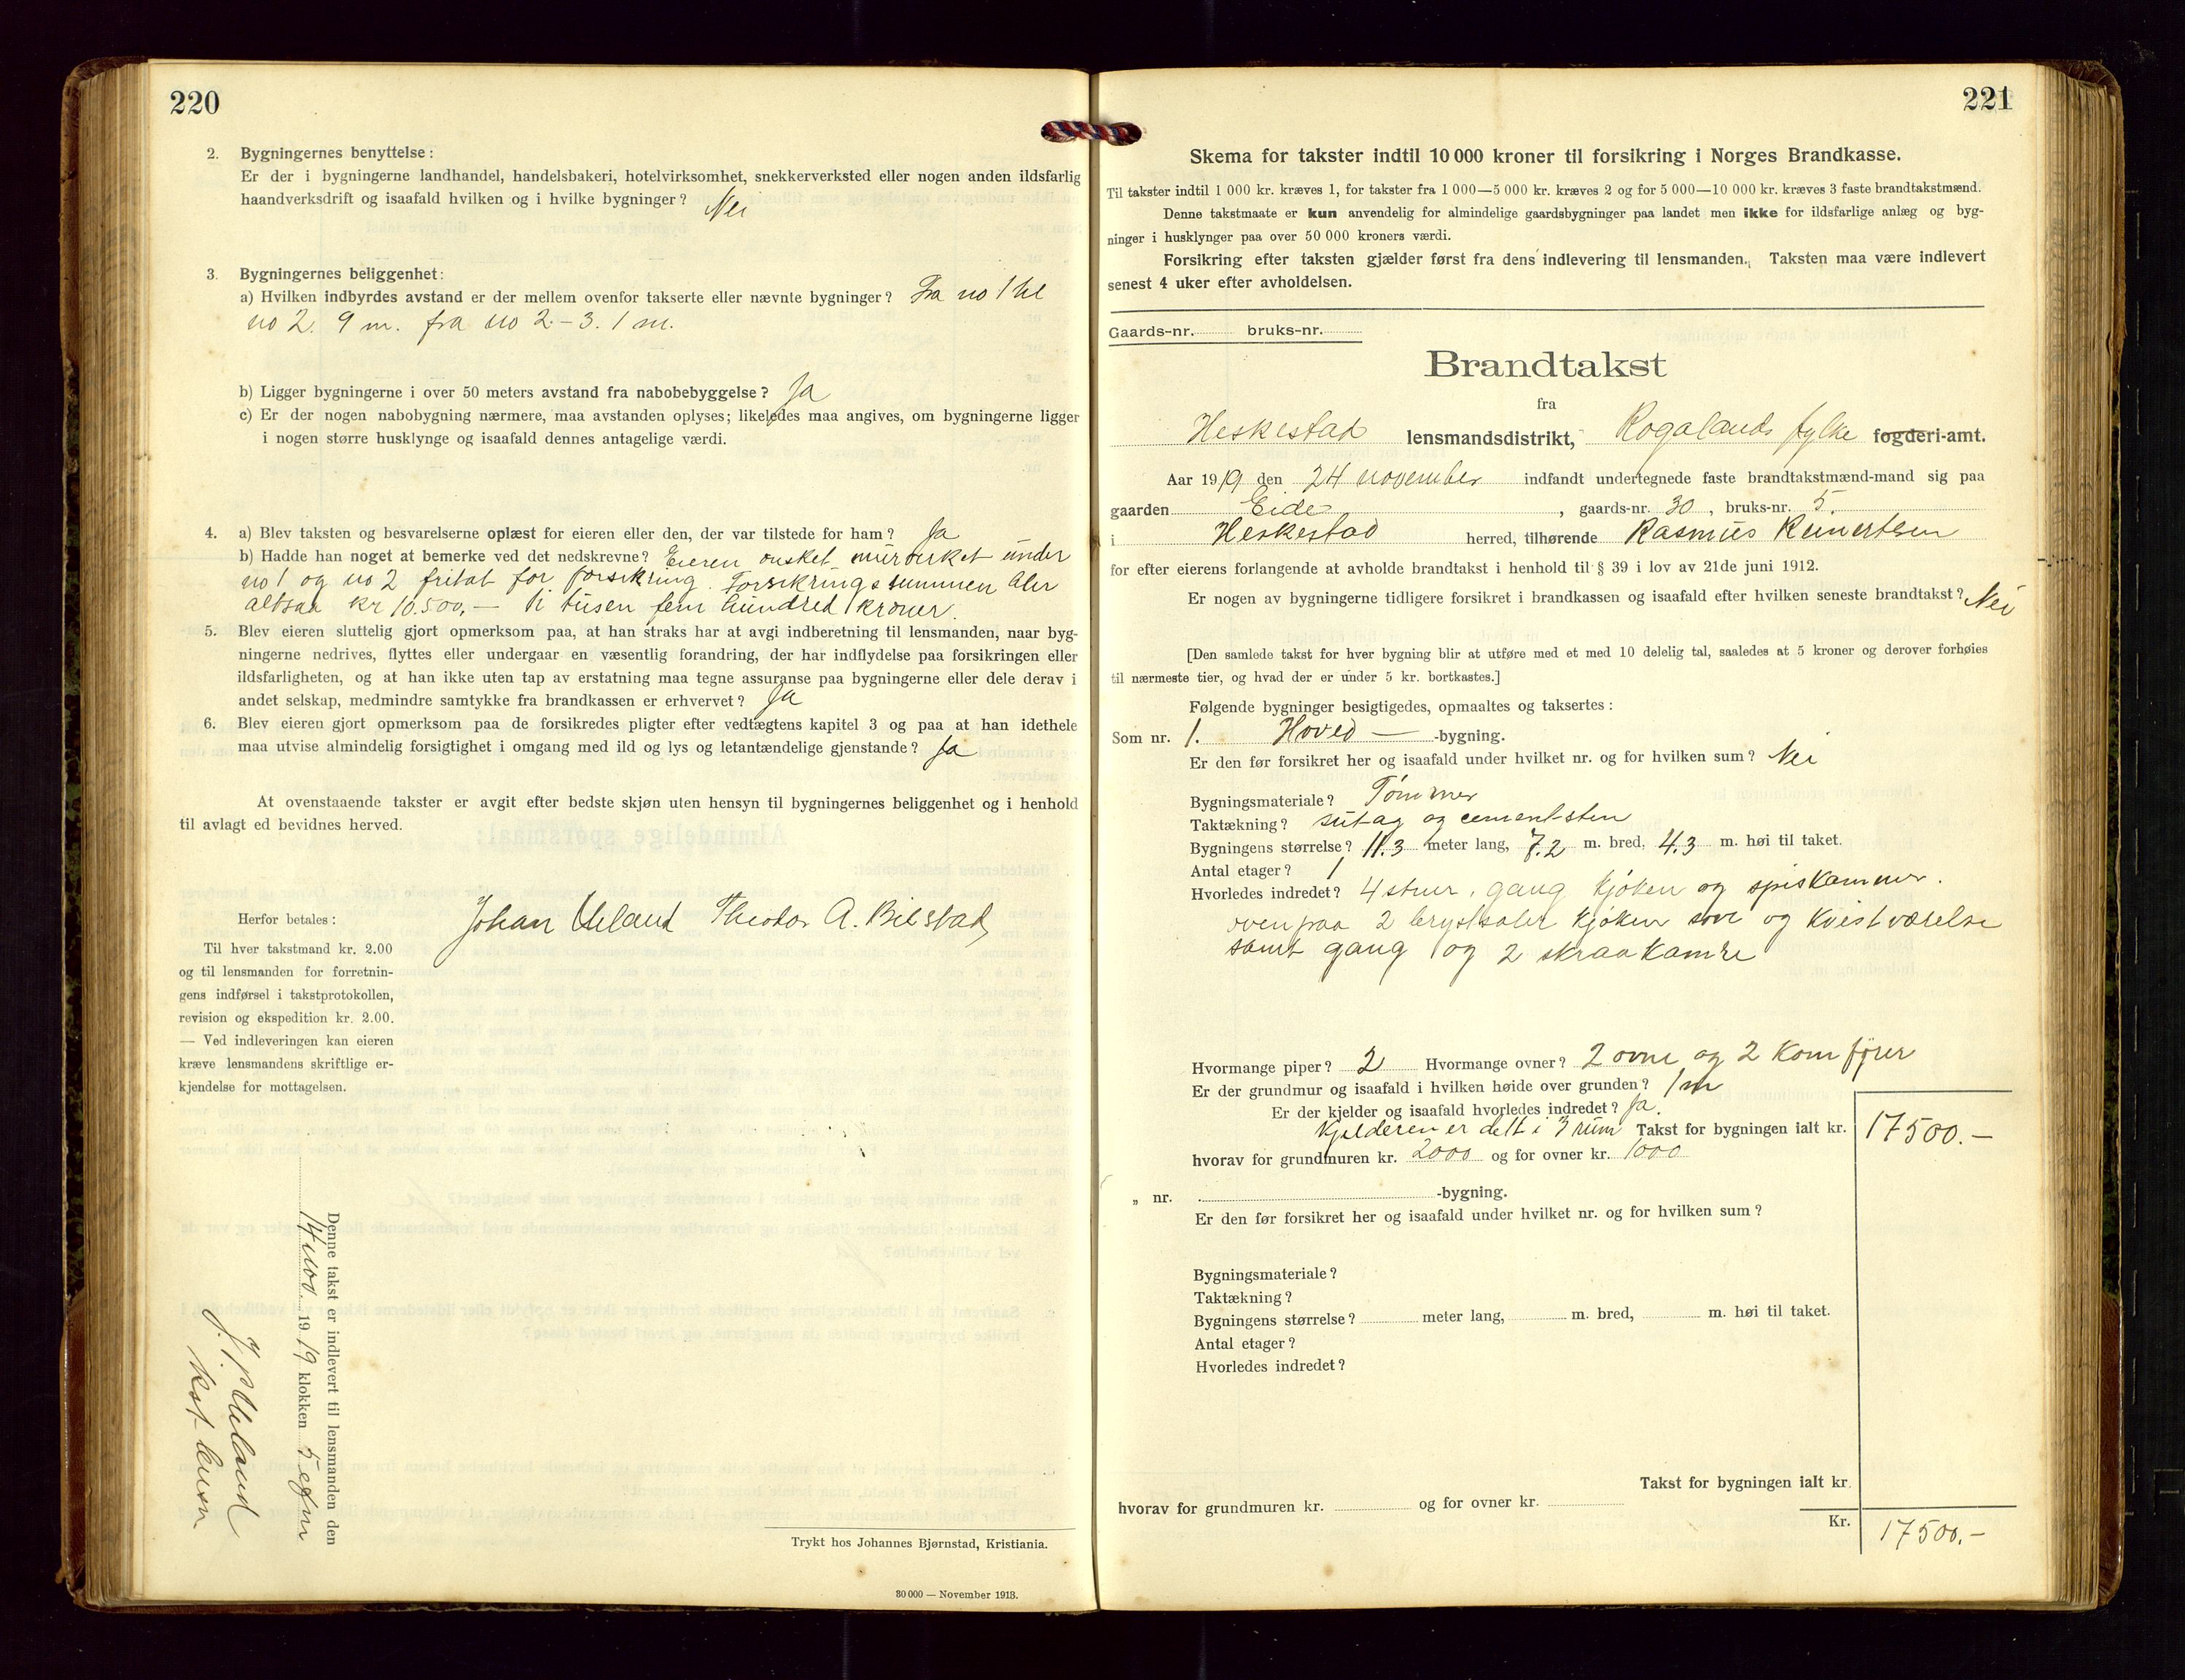 220
2. Bygningernes benyttelse:
Er der i bygningerne landhandel, handelsbakeri, hotelvirksomhet, snekkerverksted eller nogen anden ildsfarlig
haandverksdrift og isaafald hvilken og i hvilke bygninger? Nei
3. Bygningernes beliggenhet:
a) Hvilken indbyrdes avstand er der mellem ovenfor takserte eller nævnte bygninger? Fra no 1 til
no 2. 9 m. fra no 2 – 3. 1 m.
b) Ligger bygningerne i over 50 meters avstand fra nabobebyggelse? Ja
c) Er der nogen nabobygning nærmere, maa avstanden oplyses; likeledes maa angives, om bygningerne ligger
i nogen større husklynge og isaafald dennes antagelige værdi.
4. a) Blev taksten og besvarelserne oplæst for eieren eller den, der var tilstede for ham? Ja
b) Hadde han noget at bemerke ved det nedskrevne? Eieren ønsket murverket under
no 1 og no 2 fritat for forsikring. Forsikringssummen blir
altsaa kr 10.500,– ti tusen fem hundred kroner.
5. Blev eieren sluttelig gjort opmerksom paa, at han straks har at avgi indberetning til lensmanden, naar byg-
ningerne nedrives, flyttes eller undergaar en væsentlig forandring, der har indflydelse paa forsikringen eller
ildsfarligheten, og at han ikke uten tap av erstatning maa tegne assuranse paa bygningerne eller dele derav i
andet selskap, medmindre samtykke fra brandkassen er erhvervet? Ja
6. Blev eieren gjort opmerksom paa de forsikredes pligter efter vedtægtens kapitel 3 og paa at han idethele
maa utvise almindelig forsigtighet i omgang med ild og lys og letantændelige gjenstande? Ja
At ovenstaaende takster er avgit efter bedste skjøn uten hensyn til bygningernes beliggenhet og i henhold
til avlagt ed bevidnes herved.
Johan Ueland Theodor A. Bilstad
Herfor betales:
Til hver takstmand kr. 2.00
og til lensmanden for forretnin-
gens indførsel i takstprotokollen,
revision og ekspedition kr. 2.00.
— Ved indleveringen kan eieren
kræve lensmandens skriftlige er-
kjendelse for mottagelsen.
Denne takst er indlevert til lensmanden den
14 nov. 1919 klokken 5 efm
J. P. Ueland
kst. lensm
Trykt hos Johannes Bjørnstad, Kristiania.
30 000 — November 1913.
221
Skema for takster indtil 10 000 kroner til forsikring i Norges Brandkasse.
Til takster indtil 1 000 kr. kræves 1, for takster fra 1 000—5 000 kr. kræves 2 og for 5 000—10 000 kr. kræves 3 faste brandtakstmænd.
Denne takstmaate er kun anvendelig for almindelige gaardsbygninger paa landet men ikke for ildsfarlige anlæg og byg-
ninger i husklynger paa over 50 000 kroners værdi.
Forsikring efter taksten gjælder først fra dens indlevering til lensmanden. Taksten maa være indlevert
senest 4 uker efter avholdelsen.
Gaards-nr. bruks-nr.
Brandtakst
fra
Heskestad lensmandsdistrikt, Rogalands fylke fogderi-amt.
Aar 1919 den 24 november indfandt undertegnede faste brandtakstmænd-mand sig paa
gaarden Eide, gaards-nr. 30, bruks-nr. 5.
i Heskestad herred, tilhørende Rasmus Reinertsen
for efter eierens forlangende at avholde brandtakst i henhold til § 39 i lov av 21de juni 1912.
Er nogen av bygningerne tidligere forsikret i brandkassen og isaafald efter hvilken seneste brandtakst? Nei
[Den samlede takst for hver bygning blir at utføre med et med 10 delelig tal, saaledes at 5 kroner og derover forhøies
til nærmeste tier, og hvad der er under 5 kr. bortkastes.]
Følgende bygninger besigtigedes, opmaaltes og taksertes:
Som nr. 1. Hoved — -bygning.
Er den før forsikret her og isaafald under hvilket nr. og for hvilken sum? Nei
Bygningsmateriale? Tømmer
Taktækning? sutag og cementsten
Bygningens størrelse? 11.3 meter lang, 7.2 m. bred, 4.3 m. høi til taket.
Antal etager? 1
Hvorledes indredet? 4 stuer, gang kjøken og spiskammer.
ovenpaa 2 brystsaler kjøken sove og kvistværelse
samt gang og 2 skraakamre
Hvormange piper? 2 Hvormange ovner? 2 ovne og 2 komfører
Er der grundmur og isaafald i hvilken høide over grunden? 1 m
Er der kjelder og isaafald hvorledes indredet? Ja.
Kjelderen er delt i 3 rum Takst for bygningen ialt kr. 17500.–
hvorav for grundmuren kr. 2000 og for ovner kr. 1000
„ nr. -bygning.
Er den før forsikret her og isaafald under hvilket nr. og for hvilken sum?
Bygningsmateriale?
Taktækning?
Bygningens størrelse? meter lang, m. bred, m. høi til taket.
Antal etager?
Hvorledes indredet?
Takst for bygningen ialt kr.
hvorav for grundmuren kr. og for ovner kr.
Kr. 17500.–